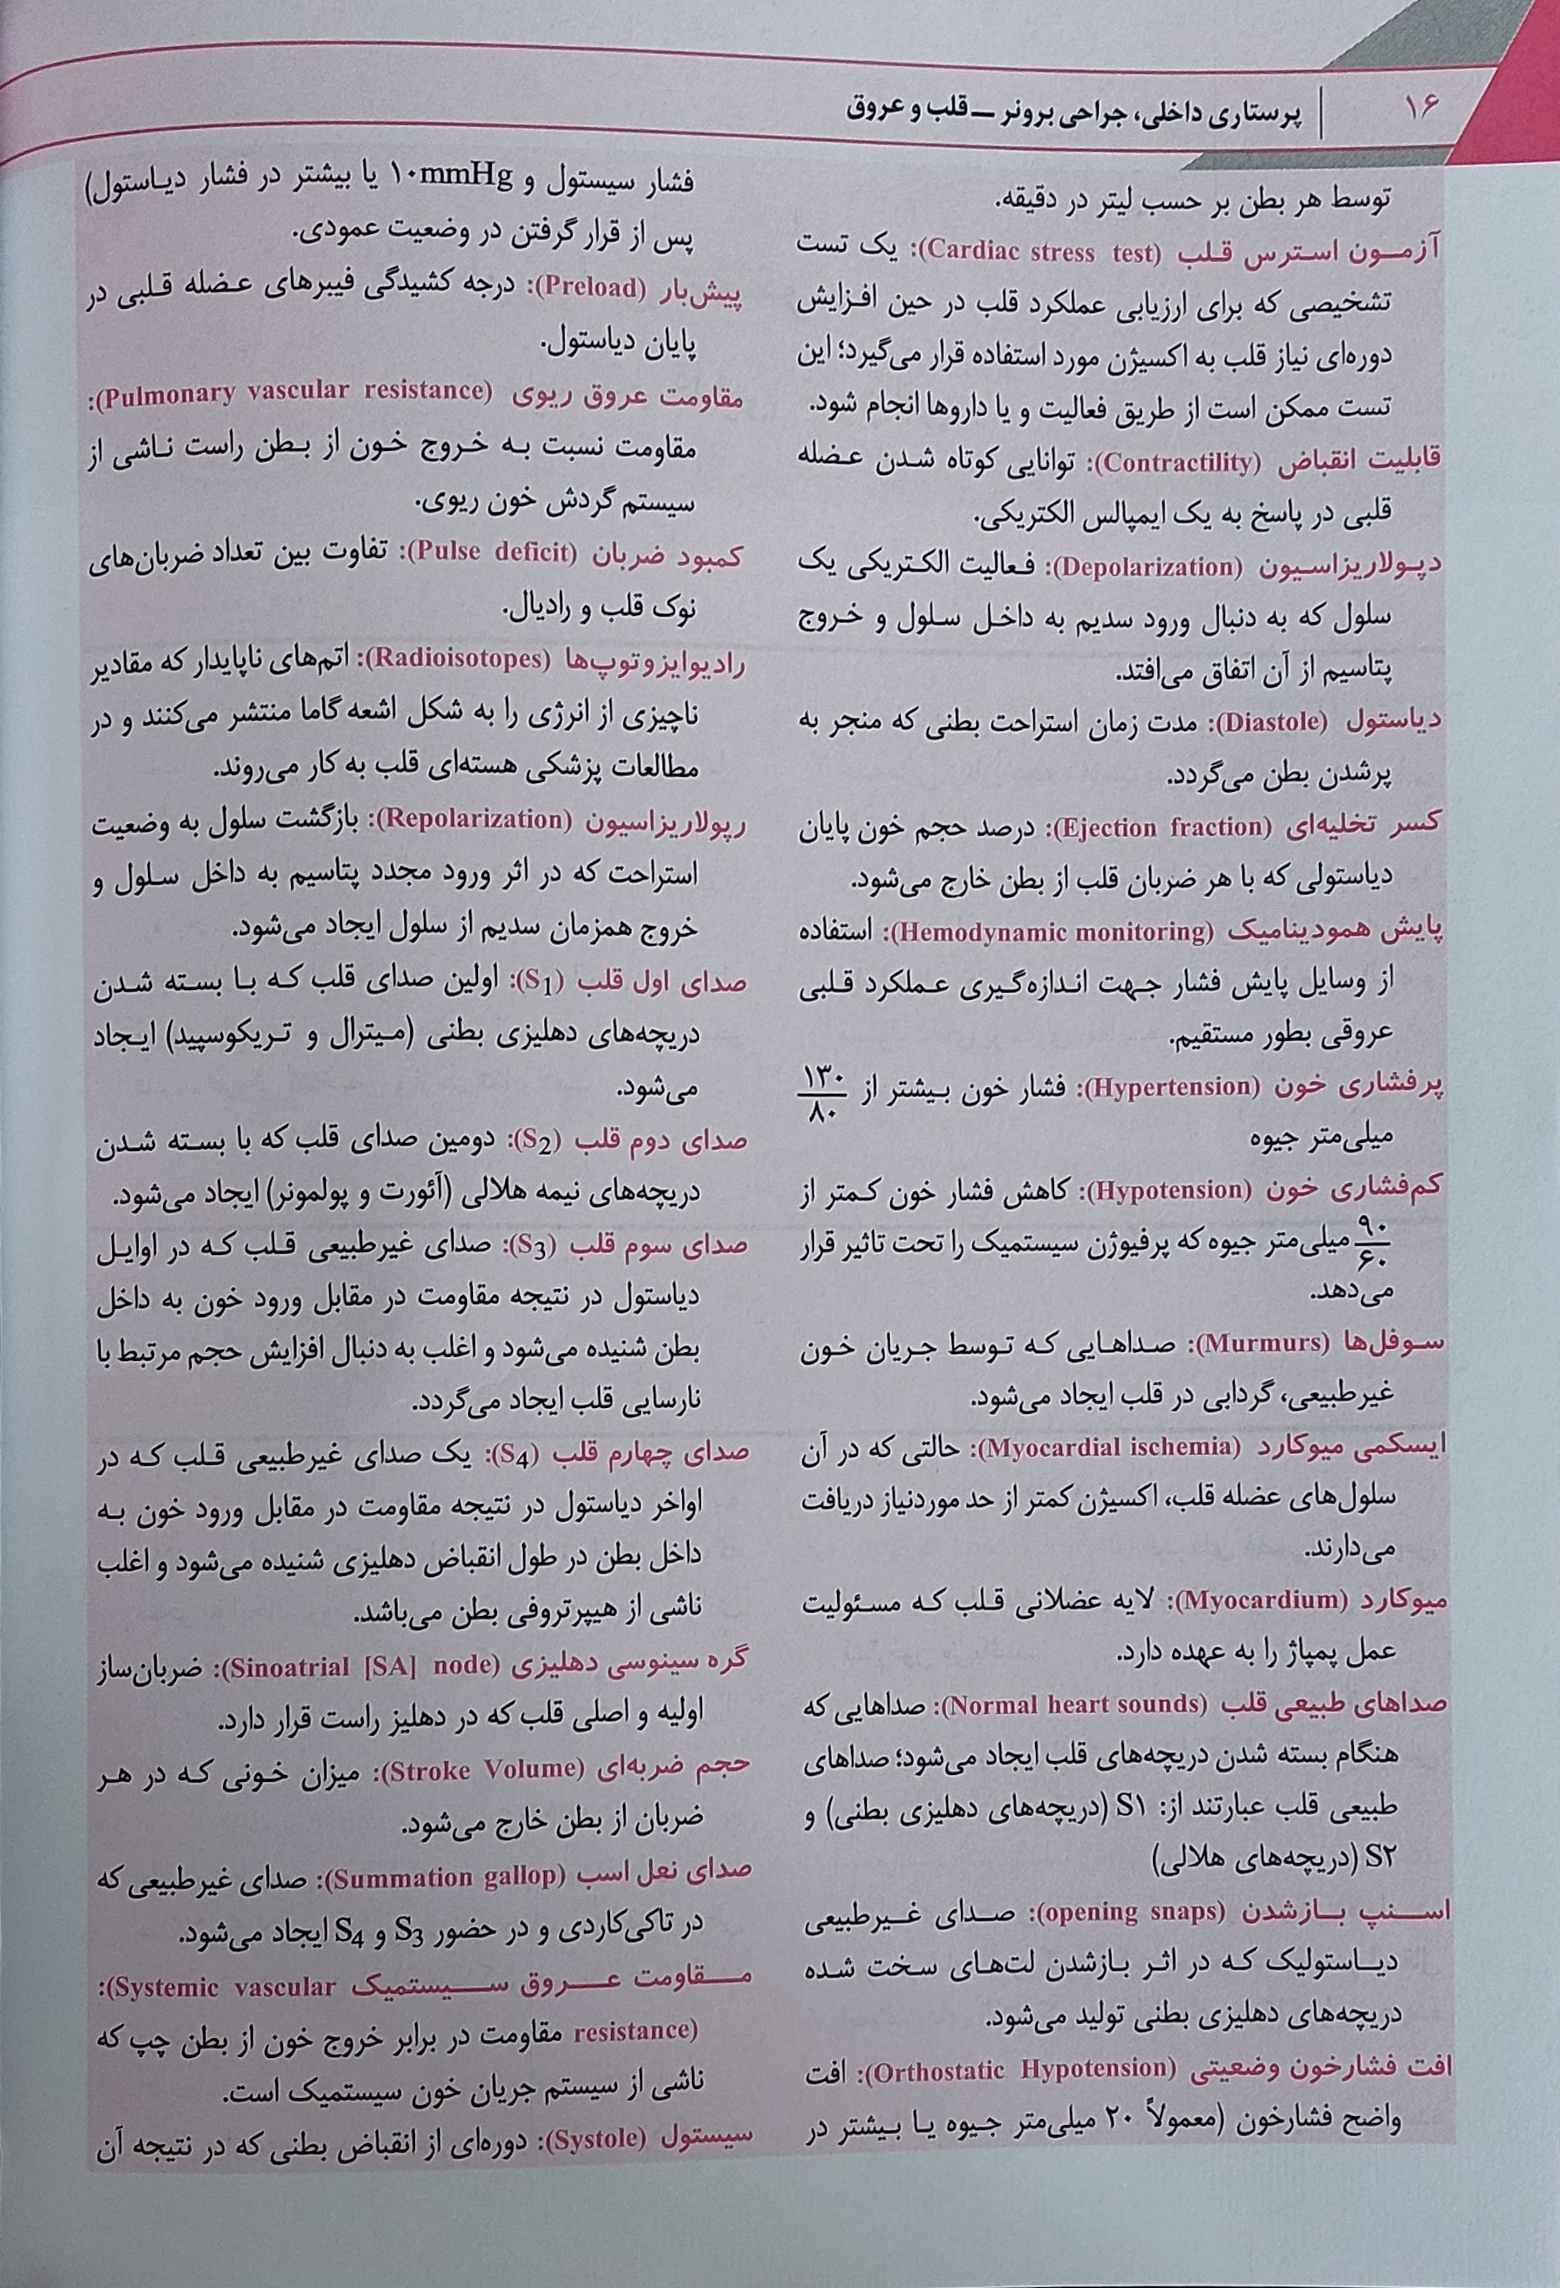 ۱۶ | پرستاری داخلی، جراحی برونر ــ قلب و عروق
توسط هر بطن بر حسب لیتر در دقیقه.
آزمون استرس قلب (Cardiac stress test): یک تست
تشخیصی که برای ارزیابی عملکرد قلب در حین افزایش
دوره‌ای نیاز قلب به اکسیژن مورد استفاده قرار می‌گیرد؛ این
تست ممکن است از طریق فعالیت و یا داروها انجام شود.
قابلیت انقباض (Contractility): توانایی کوتاه شدن عضله
قلبی در پاسخ به یک ایمپالس الکتریکی.
دپولاریزاسیون (Depolarization): فعالیت الکتریکی یک
سلول که به دنبال ورود سدیم به داخل سلول و خروج
پتاسیم از آن اتفاق می‌افتد.
دیاستول (Diastole): مدت زمان استراحت بطنی که منجر به
پرشدن بطن می‌گردد.
کسر تخلیه‌ای (Ejection fraction): درصد حجم خون پایان
دیاستولی که با هر ضربان قلب از بطن خارج می‌شود.
پایش همودینامیک (Hemodynamic monitoring): استفاده
از وسایل پایش فشار جهت اندازه‌گیری عملکرد قلبی
عروقی بطور مستقیم.
پرفشاری خون (Hypertension): فشار خون بیشتر از ۱۳۰/۸۰
میلی‌متر جیوه
کم‌فشاری خون (Hypotension): کاهش فشار خون کمتر از
۹۰/۶۰ میلی‌متر جیوه که پرفیوژن سیستمیک را تحت تاثیر قرار
می‌دهد.
سوفل‌ها (Murmurs): صداهایی که توسط جریان خون
غیرطبیعی، گردابی در قلب ایجاد می‌شود.
ایسکمی میوکارد (Myocardial ischemia): حالتی که در آن
سلول‌های عضله قلب، اکسیژن کمتر از حد موردنیاز دریافت
می‌دارند.
میوکارد (Myocardium): لایه عضلانی قلب که مسئولیت
عمل پمپاژ را به عهده دارد.
صداهای طبیعی قلب (Normal heart sounds): صداهایی که
هنگام بسته شدن دریچه‌های قلب ایجاد می‌شود؛ صداهای
طبیعی قلب عبارتند از: S۱ (دریچه‌های دهلیزی بطنی) و
S۲ (دریچه‌های هلالی)
اسنپ بازشدن (opening snaps): صدای غیرطبیعی
دیاستولیک که در اثر بازشدن لت‌های سخت شده
دریچه‌های دهلیزی بطنی تولید می‌شود.
افت فشارخون وضعیتی (Orthostatic Hypotension): افت
واضح فشارخون (معمولاً ۲۰ میلی‌متر جیوه یا بیشتر در
فشار سیستول و ۱۰mmHg یا بیشتر در فشار دیاستول)
پس از قرار گرفتن در وضعیت عمودی.
پیش‌بار (Preload): درجه کشیدگی فیبرهای عضله قلبی در
پایان دیاستول.
مقاومت عروق ریوی (Pulmonary vascular resistance):
مقاومت نسبت به خروج خون از بطن راست ناشی از
سیستم گردش خون ریوی.
کمبود ضربان (Pulse deficit): تفاوت بین تعداد ضربان‌های
نوک قلب و رادیال.
رادیوایزوتوپ‌ها (Radioisotopes): اتم‌های ناپایدار که مقادیر
ناچیزی از انرژی را به شکل اشعه گاما منتشر می‌کنند و در
مطالعات پزشکی هسته‌ای قلب به کار می‌روند.
رپولاریزاسیون (Repolarization): بازگشت سلول به وضعیت
استراحت که در اثر ورود مجدد پتاسیم به داخل سلول و
خروج همزمان سدیم از سلول ایجاد می‌شود.
صدای اول قلب (S1): اولین صدای قلب که با بسته شدن
دریچه‌های دهلیزی بطنی (میترال و تریکوسپید) ایجاد
می‌شود.
صدای دوم قلب (S2): دومین صدای قلب که با بسته شدن
دریچه‌های نیمه هلالی (آئورت و پولمونر) ایجاد می‌شود.
صدای سوم قلب (S3): صدای غیرطبیعی قلب که در اوایل
دیاستول در نتیجه مقاومت در مقابل ورود خون به داخل
بطن شنیده می‌شود و اغلب به دنبال افزایش حجم مرتبط با
نارسایی قلب ایجاد می‌گردد.
صدای چهارم قلب (S4): یک صدای غیرطبیعی قلب که در
اواخر دیاستول در نتیجه مقاومت در مقابل ورود خون به
داخل بطن در طول انقباض دهلیزی شنیده می‌شود و اغلب
ناشی از هیپرتروفی بطن می‌باشد.
گره سینوسی دهلیزی (Sinoatrial [SA] node): ضربان‌ساز
اولیه و اصلی قلب که در دهلیز راست قرار دارد.
حجم ضربه‌ای (Stroke Volume): میزان خونی که در هر
ضربان از بطن خارج می‌شود.
صدای نعل اسب (Summation gallop): صدای غیرطبیعی که
در تاکی‌کاردی و در حضور S3 و S4 ایجاد می‌شود.
مقاومت عروق سیستمیک (Systemic vascular:
resistance) مقاومت در برابر خروج خون از بطن چپ که
ناشی از سیستم جریان خون سیستمیک است.
سیستول (Systole): دوره‌ای از انقباض بطنی که در نتیجه آن